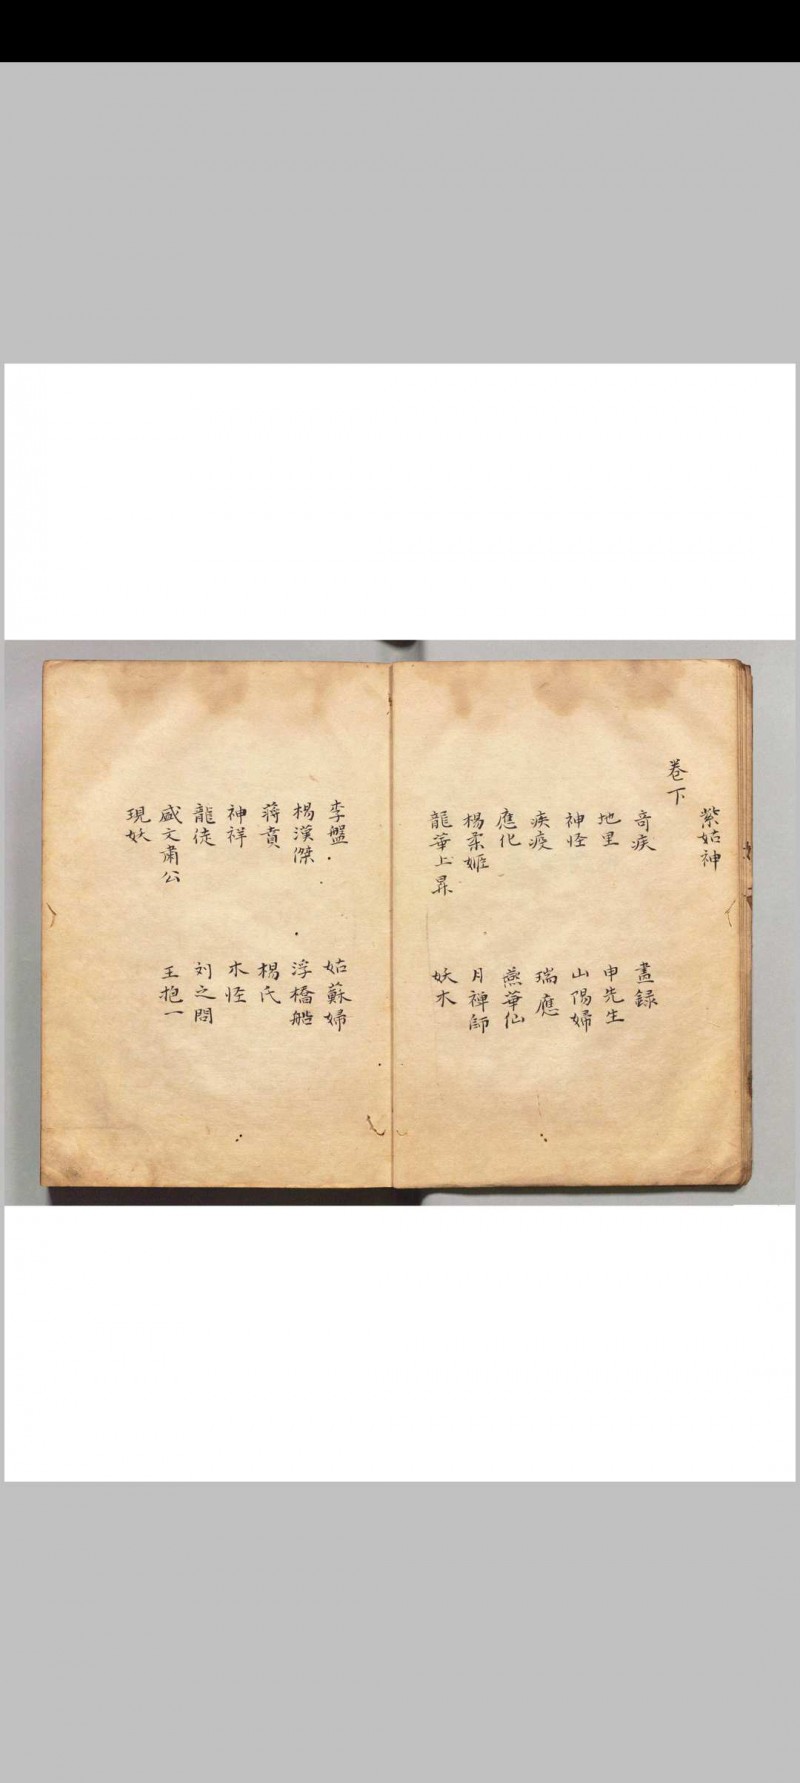 紫姑神
卷下
奇疾 畫録
地里 申先生
神怪 山陽婦
疾疫 瑞應
應化 燕華仙
楊柔姬 月禅師
龍華上昇 妖木
李盤 姑蘇婦
楊漢傑 浮橋船
蔣賁 楊氏
神祥 木怪
龍徒 刘之問
盛文肅公 王抱一
現妖